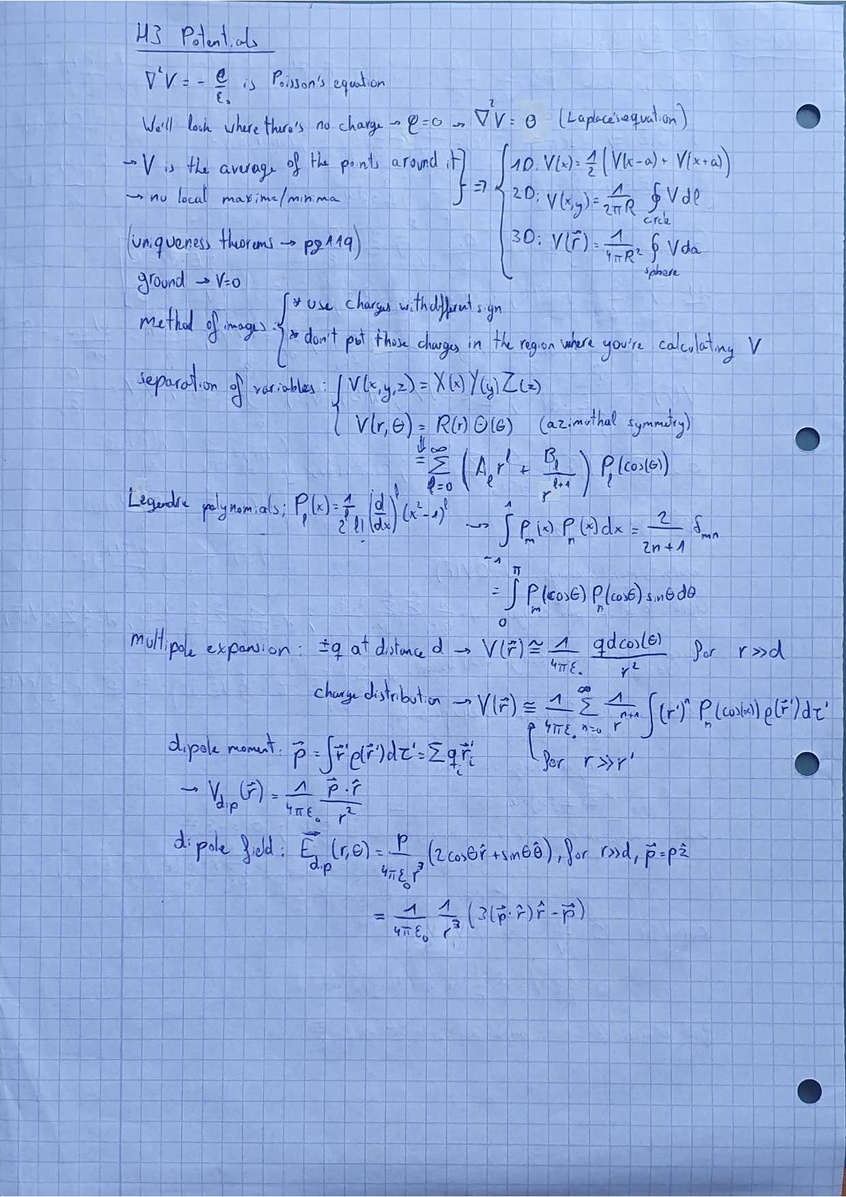 H3 Potentials
∇²V = - ρ/ε₀ is Poisson's equation
We'll look where there's no charge → ρ=0 → ∇²V = 0 (Laplace's equation)
→ V is the average of the points around it
→ no local maxima/minima
⇒ { 1D: V(x) = 1/2 (V(x-a) + V(x+a))
2D: V(x,y) = 1/(2πR) ∮ V dl
circle
3D: V(r⃗) = 1/(4πR²) ∮ V da
sphere
(uniqueness theorems → pg 119)
ground → V=0
method of images: { * use charges with different sign
* don't put those charges in the region where you're calculating V
separation of variables: { V(x,y,z) = X(x) Y(y) Z(z)
V(r,θ) = R(r) Θ(θ) (azimuthal symmetry)
⇓
= ∞Σl=0 (A_l r^l + B_l/r^(l+1)) P_l (cos(θ))
Legendre polynomials: P_l(x) = 1/(2^l l!) (d/dx)^l (x²-1)^l → ∫₋₁¹ P_m(x) P_n(x) dx = 2/(2n+1) δ_mn
= ∫₀^π P_m(cosθ) P_n(cosθ) sinθ dθ
multipole expansion: ±q at distance d → V(r⃗) ≅ 1/(4πε₀) qd cos(θ)/r² for r≫d
charge distribution → V(r⃗) ≅ 1/(4πε₀) ∞Σn=0 1/r^(n+1) ∫(r')^n P_n(cos(α)) ρ(r⃗') dτ'
for r≫r'
dipole moment: p⃗ = ∫ r⃗' ρ(r⃗') dτ' = Σ q_i r⃗_i'
→ V_dip(r⃗) = 1/(4πε₀) p⃗·r̂/r²
dipole field: E⃗_dip (r,θ) = p/(4πε₀r³) (2cosθ r̂ + sinθ θ̂), for r≫d, p⃗=pẑ
= 1/(4πε₀) 1/r³ (3(p⃗·r̂) r̂ - p⃗)